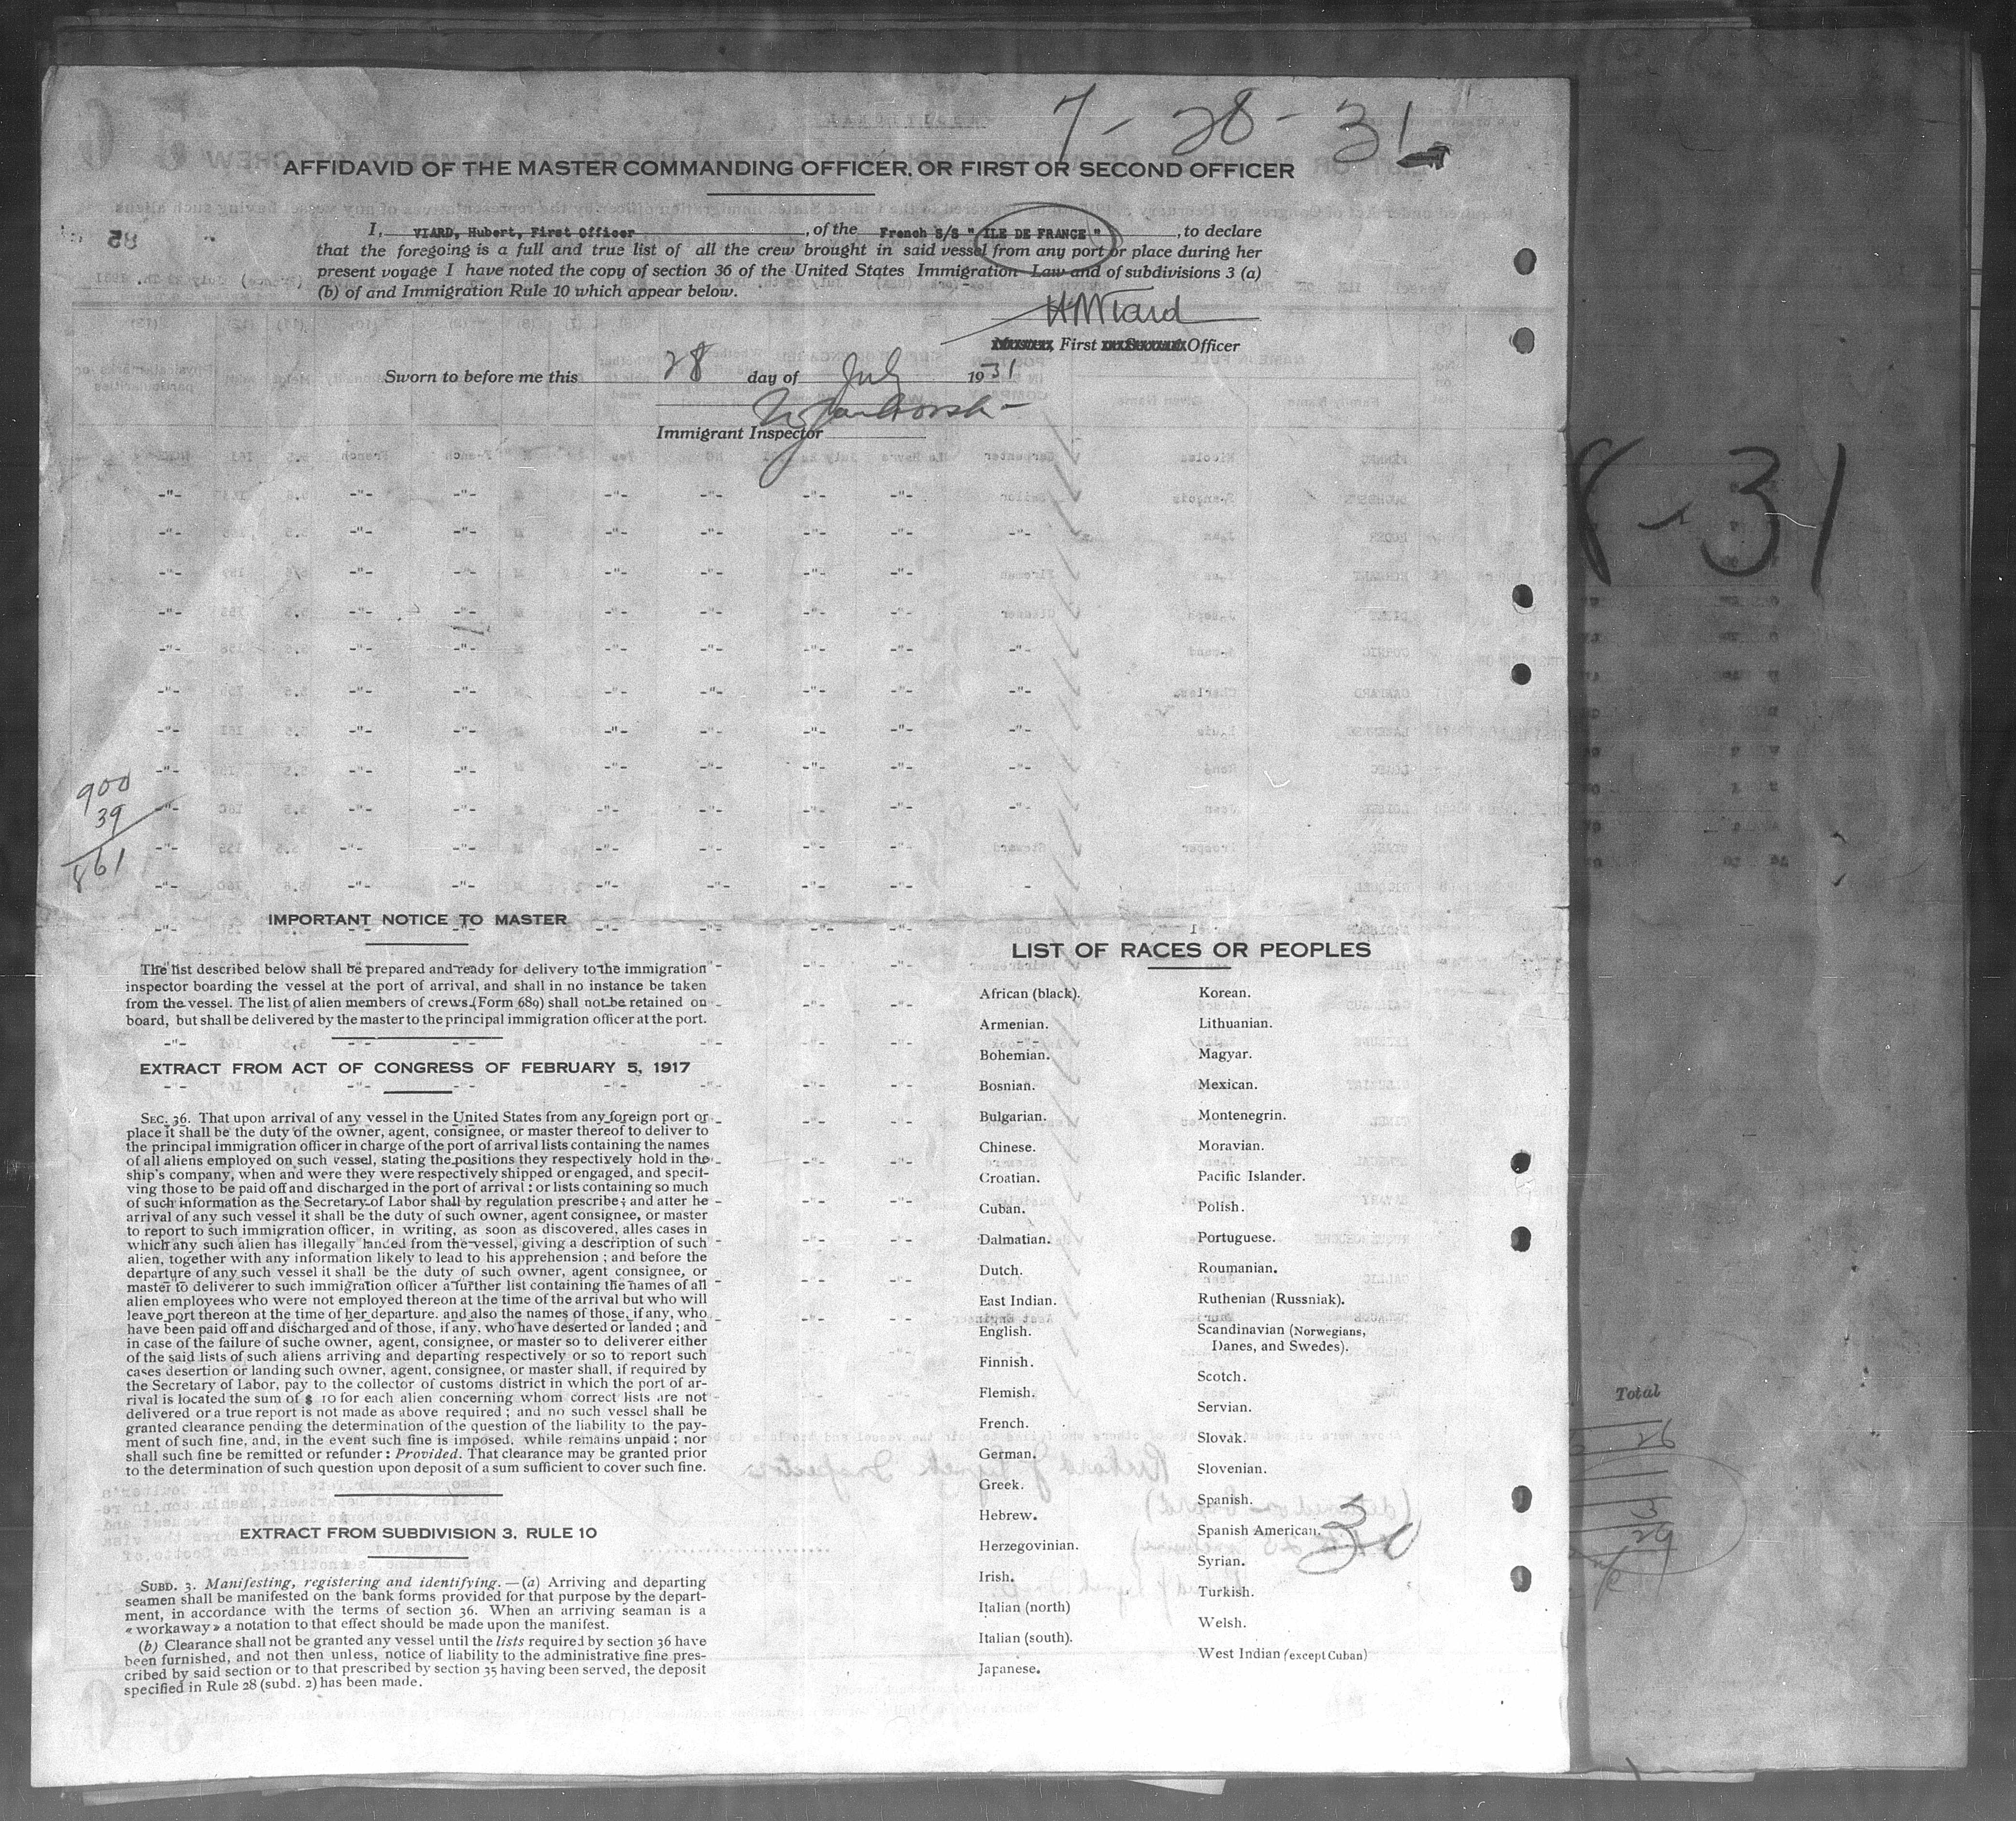 7 - 28 - 31
AFFIDAVID OF THE MASTER COMMANDING OFFICER, OR FIRST OR SECOND OFFICER
I, VIARD, Hubert, First Officer, of the French S/S " ILE DE FRANCE ", to declare
that the foregoing is a full and true list of all the crew brought in said vessel from any port or place during her
present voyage I have noted the copy of section 36 of the United States Immigration Law and of subdivisions 3 (a)
(b) of and Immigration Rule 10 which appear below.
HViard
First Officer
Sworn to before me this 28 day of July 1931
Immigrant Inspector
8-31
900
39
861
IMPORTANT NOTICE TO MASTER
The list described below shall be prepared and ready for delivery to the immigration
inspector boarding the vessel at the port of arrival, and shall in no instance be taken
from the vessel. The list of alien members of crews (Form 689) shall not be retained on
board, but shall be delivered by the master to the principal immigration officer at the port.
EXTRACT FROM ACT OF CONGRESS OF FEBRUARY 5, 1917
SEC. 36. That upon arrival of any vessel in the United States from any foreign port or
place it shall be the duty of the owner, agent, consignee, or master thereof to deliver to
the principal immigration officer in charge of the port of arrival lists containing the names
of all aliens employed on such vessel, stating the positions they respectively hold in the
ship's company, when and were they were respectively shipped or engaged, and specit-
ving those to be paid off and discharged in the port of arrival : or lists containing so much
of such information as the Secretary of Labor shall by regulation prescribe ; and atter he
arrival of any such vessel it shall be the duty of such owner, agent consignee, or master
to report to such immigration officer, in writing, as soon as discovered, alles cases in
which any such alien has illegally landed from the vessel, giving a description of such
alien, together with any information likely to lead to his apprehension ; and before the
departure of any such vessel it shall be the duty of such owner, agent consignee, or
master to deliverer to such immigration officer a further list containing the names of all
alien employees who were not employed thereon at the time of the arrival but who will
leave port thereon at the time of her departure. and also the names of those, if any, who
have been paid off and discharged and of those, if any, who have deserted or landed ; and
in case of the failure of suche owner, agent, consignee, or master so to deliverer either
of the said lists of such aliens arriving and departing respectively or so to report such
cases desertion or landing such owner, agent, consignee, or master shall, if required by
the Secretary of Labor, pay to the collector of customs district in which the port of ar-
rival is located the sum of $ 10 for each alien concerning whom correct lists are not
delivered or a true report is not made as above required ; and no such vessel shall be
granted clearance pending the determination of the question of the liability to the pay-
ment of such fine, and, in the event such fine is imposed, while remains unpaid ; nor
shall such fine be remitted or refunder : Provided. That clearance may be granted prior
to the determination of such question upon deposit of a sum sufficient to cover such fine.
EXTRACT FROM SUBDIVISION 3, RULE 10
SUBD. 3. Manifesting, registering and identifying. — (a) Arriving and departing
seamen shall be manifested on the bank forms provided for that purpose by the depart-
ment, in accordance with the terms of section 36. When an arriving seaman is a
« workaway » a notation to that effect should be made upon the manifest.
(b) Clearance shall not be granted any vessel until the lists required by section 36 have
been furnished, and not then unless, notice of liability to the administrative fine pres-
cribed by said section or to that prescribed by section 35 having been served, the deposit
specified in Rule 28 (subd. 2) has been made.
LIST OF RACES OR PEOPLES
African (black).
Armenian.
Bohemian.
Bosnian.
Bulgarian.
Chinese.
Croatian.
Cuban.
Dalmatian.
Dutch.
East Indian.
English.
Finnish.
Flemish.
French.
German.
Greek.
Hebrew.
Herzegovinian.
Irish.
Italian (north)
Italian (south).
Japanese.
Korean.
Lithuanian.
Magyar.
Mexican.
Montenegrin.
Moravian.
Pacific Islander.
Polish.
Portuguese.
Roumanian.
Ruthenian (Russniak).
Scandinavian (Norwegians,
Danes, and Swedes).
Scotch.
Servian.
Slovak.
Slovenian.
Spanish.
Spanish American.
Syrian.
Turkish.
Welsh.
West Indian (except Cuban)
30
Total
26
3
29